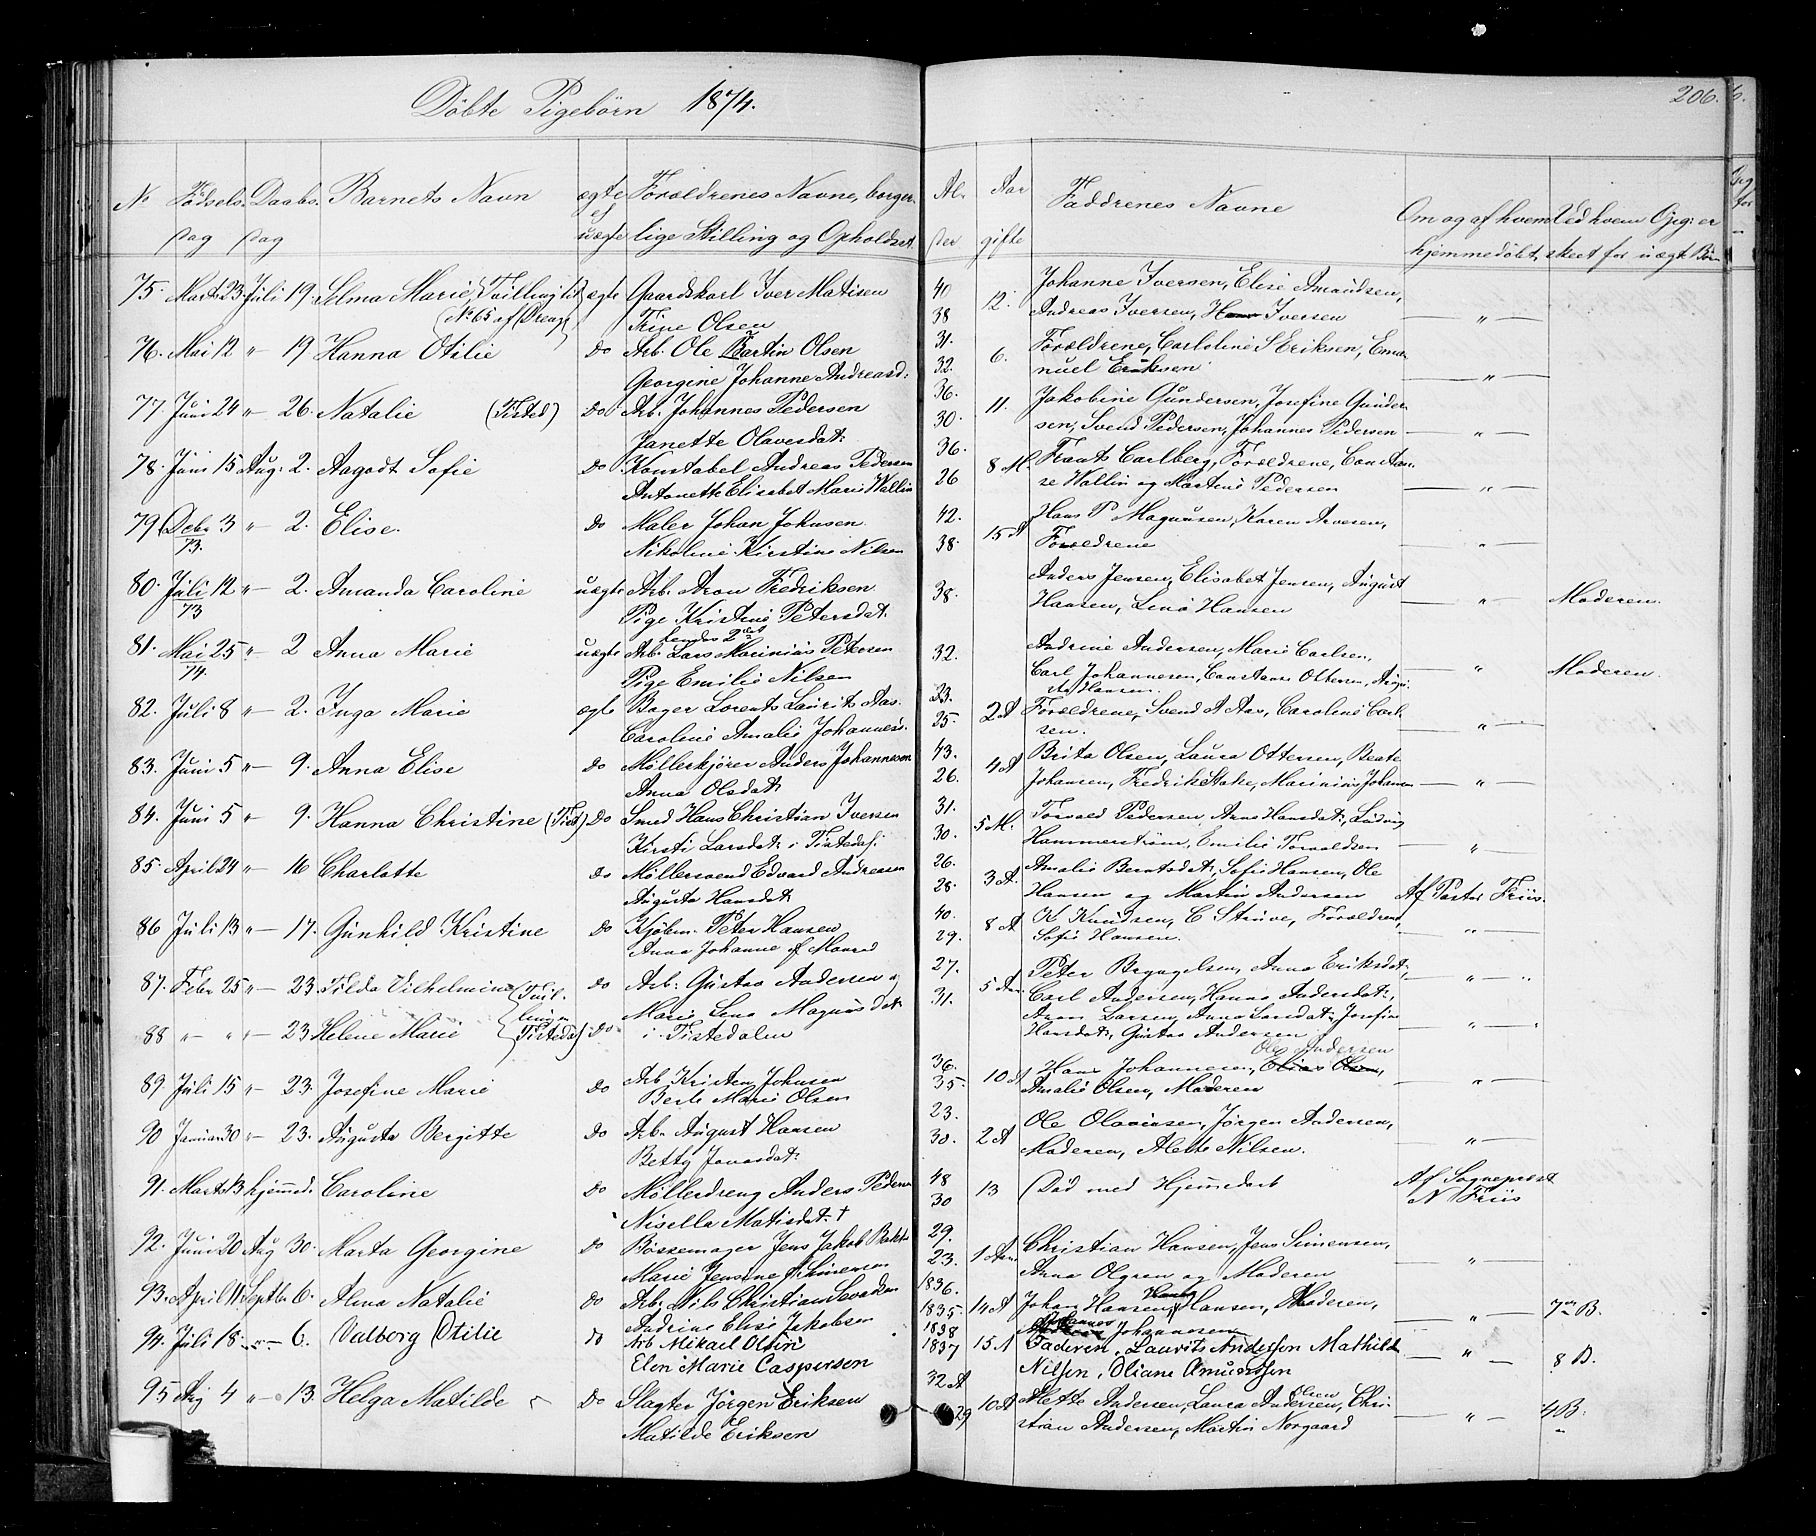 Döbte Pigebörn 1874.
206.
No Födsels- Daabs- Barnets Navn ægte Forældrenes Navne, borger- Al- Aar Faddrenes Navne Om og af hvem Ved hvem Opg: er
dag dag uægte lige Stilling og Opholdsst. der gifte hjemmedöbt skeet for uægte Börn
75. Marts 23 Juli 19. Selma Marie (Tvilling til ægte Gaardskarl Iver Matisen 40 12. Johanne Iversen, Elise Amundsen,
(No 65 af Drenge) Trine Olsen 38 Andreas Iversen, Hans Iversen — " —
76. Mai 12 " 19. Hanna Otilie do Arb. Ole Martin Olsen 31. 6. Forældrene, Carloline S Eriksen, Ema-
Georgine Johanne Andreasd: 32. nuel Eriksen — " —
77. Juni 24 " 26. Natalie (Tisted) do Arb. Johannes Pedersen 36. 11. Jakobine Gundersen, Josefine Gunder-
Janette Olavesdat: 30. sen, Svend Pedersen, Johannes Pedersen — " —
78. Juni 15 Aug: 2. Aagodt Sofie do Konstabel Andreas Pedersen 36. 8 M. Frants Carlberg, Forældrene, Constan-
Antonette Elisabet Marie Wallin 26 se Wallin og Martine Pedersen — " —
79 Debr 3 " 2. Elise. do Maler Johan Johnsen 42. 15 A Hans P Magnusen, Karen Arvesen,
73. Nikoline Kirstine Nilsen 38. Forældrene — " —
80. Juli 12 " 2. Amanda Caroline uægte Arb. Aron Fredriksen 38. Anders Jensen, Elisabet Jensen, August
73 Pige Kristine Petersdat. Hansen, Lina Hansen — " — Moderen.
81. Mai 25 " 2 Anna Marie uægte Arb. Lars Marinius Petersen 32. Andrine Andersen, Marie Carlsen,
74. Pige Emilie Nilsen 23. Carl Johannesen, Constanse Ottersen, — " — Moderen.
Hansen.
82. Juli 8 " 2. Inga Marie ægte Bager Lorents Laurits Aas. 25. 2 A Forældrene, Svend A Aas, Caroline Carl-
Caroline Amalie Johannes. sen. — " —
83. Juni 5 " 9. Anna Elise do Möllerkjörer Anders Johannesen 43. 4 A Brita Olsen, Laura Ottersen, Beate
Anna Olsdat: 26. Johansen, Fredrik Stake, Marinius Johansen — " —
84. Juni 5 " 9. Hanna Christine (Tist) do Smed Hans Christian Iversen 31. 5 M. Torvald Pedersen, Anne Hansdat:, Ludvig
Kirsti Larsdat: i Tistedal: 30. Hammerström, Emilie Torvaldsen — " —
85. April 24 " 16 Charlotte do Möllersvend Edvard Andreasen 26. 3 A. Amalie Berntsdat:, Sofie Hansen, Ole
Augusta Hansdat: 28. Hansen og Martin Andersen Af Pastor Friis.
86 Juli 13 " 17. Gunhild Kristine do Kjöbm. Peter Hansen 40. 8 A K Knudsen, C Struve, Forældrene,
Anna Johanne f Monrad 29. Sofie Hansen. — " —
87. Febr 25 " 23 Tilda Vilhelmine (Tvil- do Arb. Gustav Andersen og 27. 5 Aar Peter Brynjelsen, Anna Eriksdat:, — " —
lingen Maria Lena Magnusdat: 31. Carl Andersen, Hanna Andersdat:,
88 " " " 23 Helene Marie Tistedal) do i Tistedalen Aron Larsen, Anna Larsdat:, Josefine
Hansdat:, Gustav Andersen — " —
89. Juli 15 " 23. Josefine Marie do Arb Kristen Johnsen 36. 10 A Hans Johannesen, Elias Olsen, Ole Andersen
Berte Marie Olsen 35. Amalie Olsen, Moderen — " —
90 Januar 30 " 23. Augusta Bergitte do Arb. August Hansen 23. 2 A Ole Olavesen, Jörgen Andersen,
Betty Jonasdat: 30. Moderen, Alette Nilsen. — " —
91. Marts 13 hjemmed. Caroline do Möllerdreng Anders Pedersen 48 13 (Död med Hjemmedaab Af Sogneprest
Nisella Matisdat: † 30 N Friis
92. Juni 20 Aug 30. Marta Georgine do Bössemager Jens Jakob Bakke 29. 1 Aar Christian Hansen, Jens Simensen,
Marie Jensine f Simensen 23. Anna Olsen og Moderen — " —
93. April 11 Septbr 6. Alma Natalie do Arb. Nils Christian Svendsen 1836. 14 A Johan Hansen, Hans Hansen, Moderen,
Andrine Elise Jakobsen 1835 Johannes Johannesen — " — 7 B.
94. Juli 18. " 6. Valborg Otilie do Arb Mikael Olsen 1838 15 A Faderen, Laurits Andersson Mathilde
Elen Marie Caspersen 1837 Nilssen, Oliane Amundssen — " — 8 B.
95 Aug 4 " 13. Helga Matilde do Slagter Jörgen Eriksen 32 A 10 A Mette Andersen, Laura Andersen, Olsen Chri-
Matilde Eriksen 29 stian Andersen, Martin Norgaard — " — 4 B.